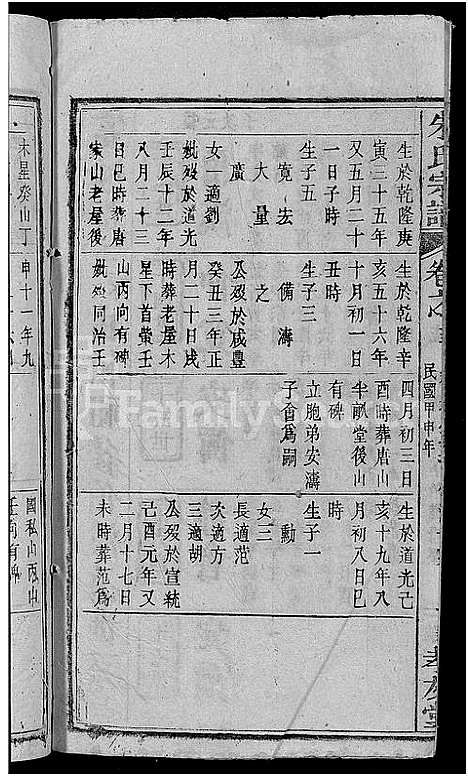 朱氏宗譜
卷
民國甲申年
孝友堂
生於乾隆庚
寅三十五年
又五月二十
一日子時
生子五
寬 宏
大 量
廣
女一適劉
妣歿於道光
壬辰十二年
八月二十三
日巳時葬唐
家山老屋後
生於乾隆辛
亥五十六年
十月初一日
丑時
生子三
備 濤
之
公歿於咸豐
癸丑三年正
月二十日戌
時葬老屋木
星下首塋壬
山丙向有碑
妣歿同治壬
四月初三日
酉時葬唐山
半畝堂後山
有碑
立胞弟安濤
子會為嗣
生於道光己
亥十九年八
月初八日巳
時
生子一
勳
女三
長適范
次適方
三適胡
公歿於宣統
己酉元年又
二月十七日
未時葬范爲
木星癸山丁
申十一年九
國私山丙山
壬向有碑
FamilySearch